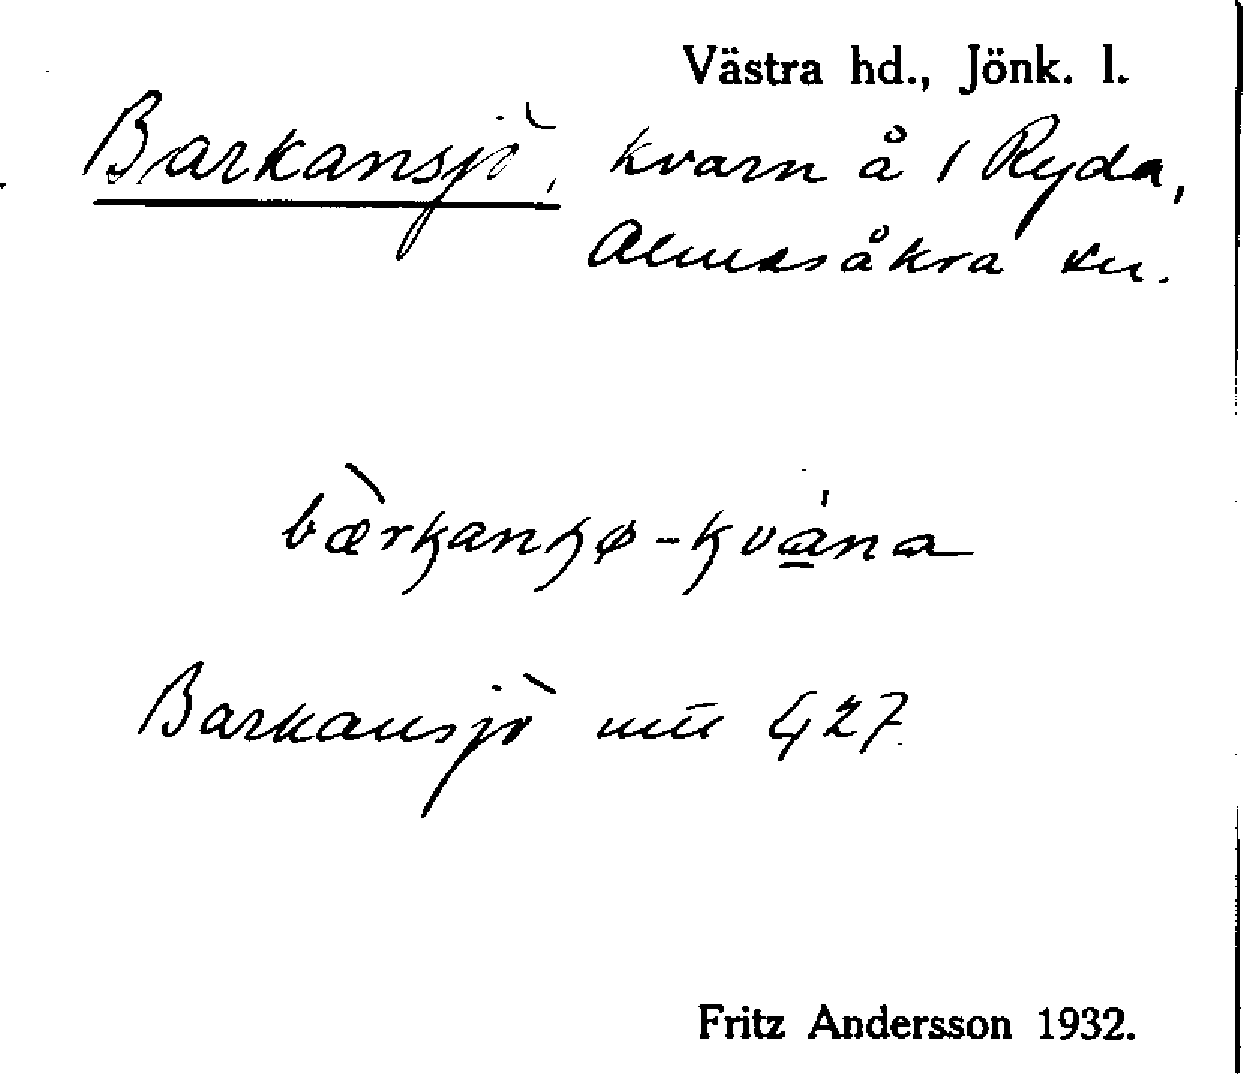 Västra hd., Jönk. l.
Barkansjö, kvarn å 1 Ryda,
Almesåkra sn.
bærkanɧø-kvána
Barkansjö 427
Fritz Andersson 1932.